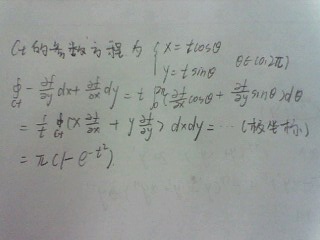 Ct的参数方程为 { x = tcosθ
y = tsinθ θ∈(0,2π)
∮Ct -∂f/∂y dx + ∂f/∂x dy = t ∫₀^2π (∂f/∂x cosθ + ∂f/∂y sinθ) dθ
= 1/t ∮Ct (x ∂f/∂x + y ∂f/∂y) dxdy = … (极坐标)
= π(1-e^-t²)